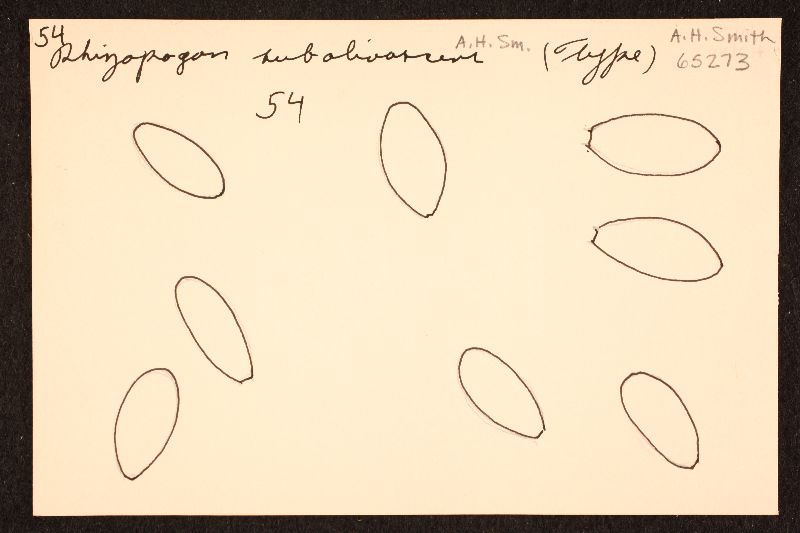 54
Rhizopogon subolivascens A.H. Sm. (Type) A.H. Smith
65273
54